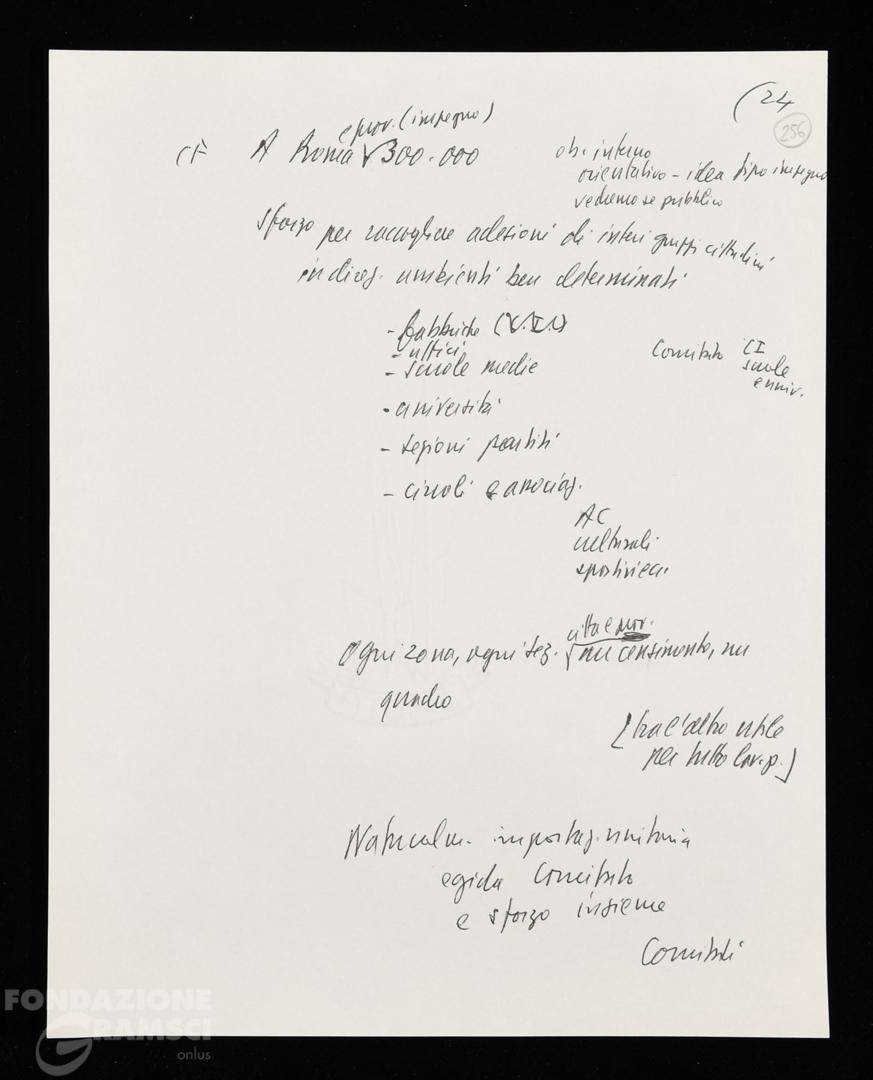 (24
256
e prov. (impegno)
CF A Roma √ 300.000
ob. interno
orientativo - idea tipo impegno
vedremo se pubblico
sforzo per raccogliere adesioni di interi gruppi cittadini
in direz. ambienti ben determinati
- fabbriche
- uffici
- scuole medie
Comitato CI
scuole
e univ.
- università
- sezioni partiti
- circoli e associaz.
AC
culturali
sportivi ecc.
città e prov.
Ogni zona, ogni sez. √ un censimento, un
quadro
[tra l'altro utile
per tutto lav. p.]
Naturalm. impostaz. unitaria
egida Comitato
e sforzo insieme
Comitati
FONDAZIONE
GRAMSCI
onlus